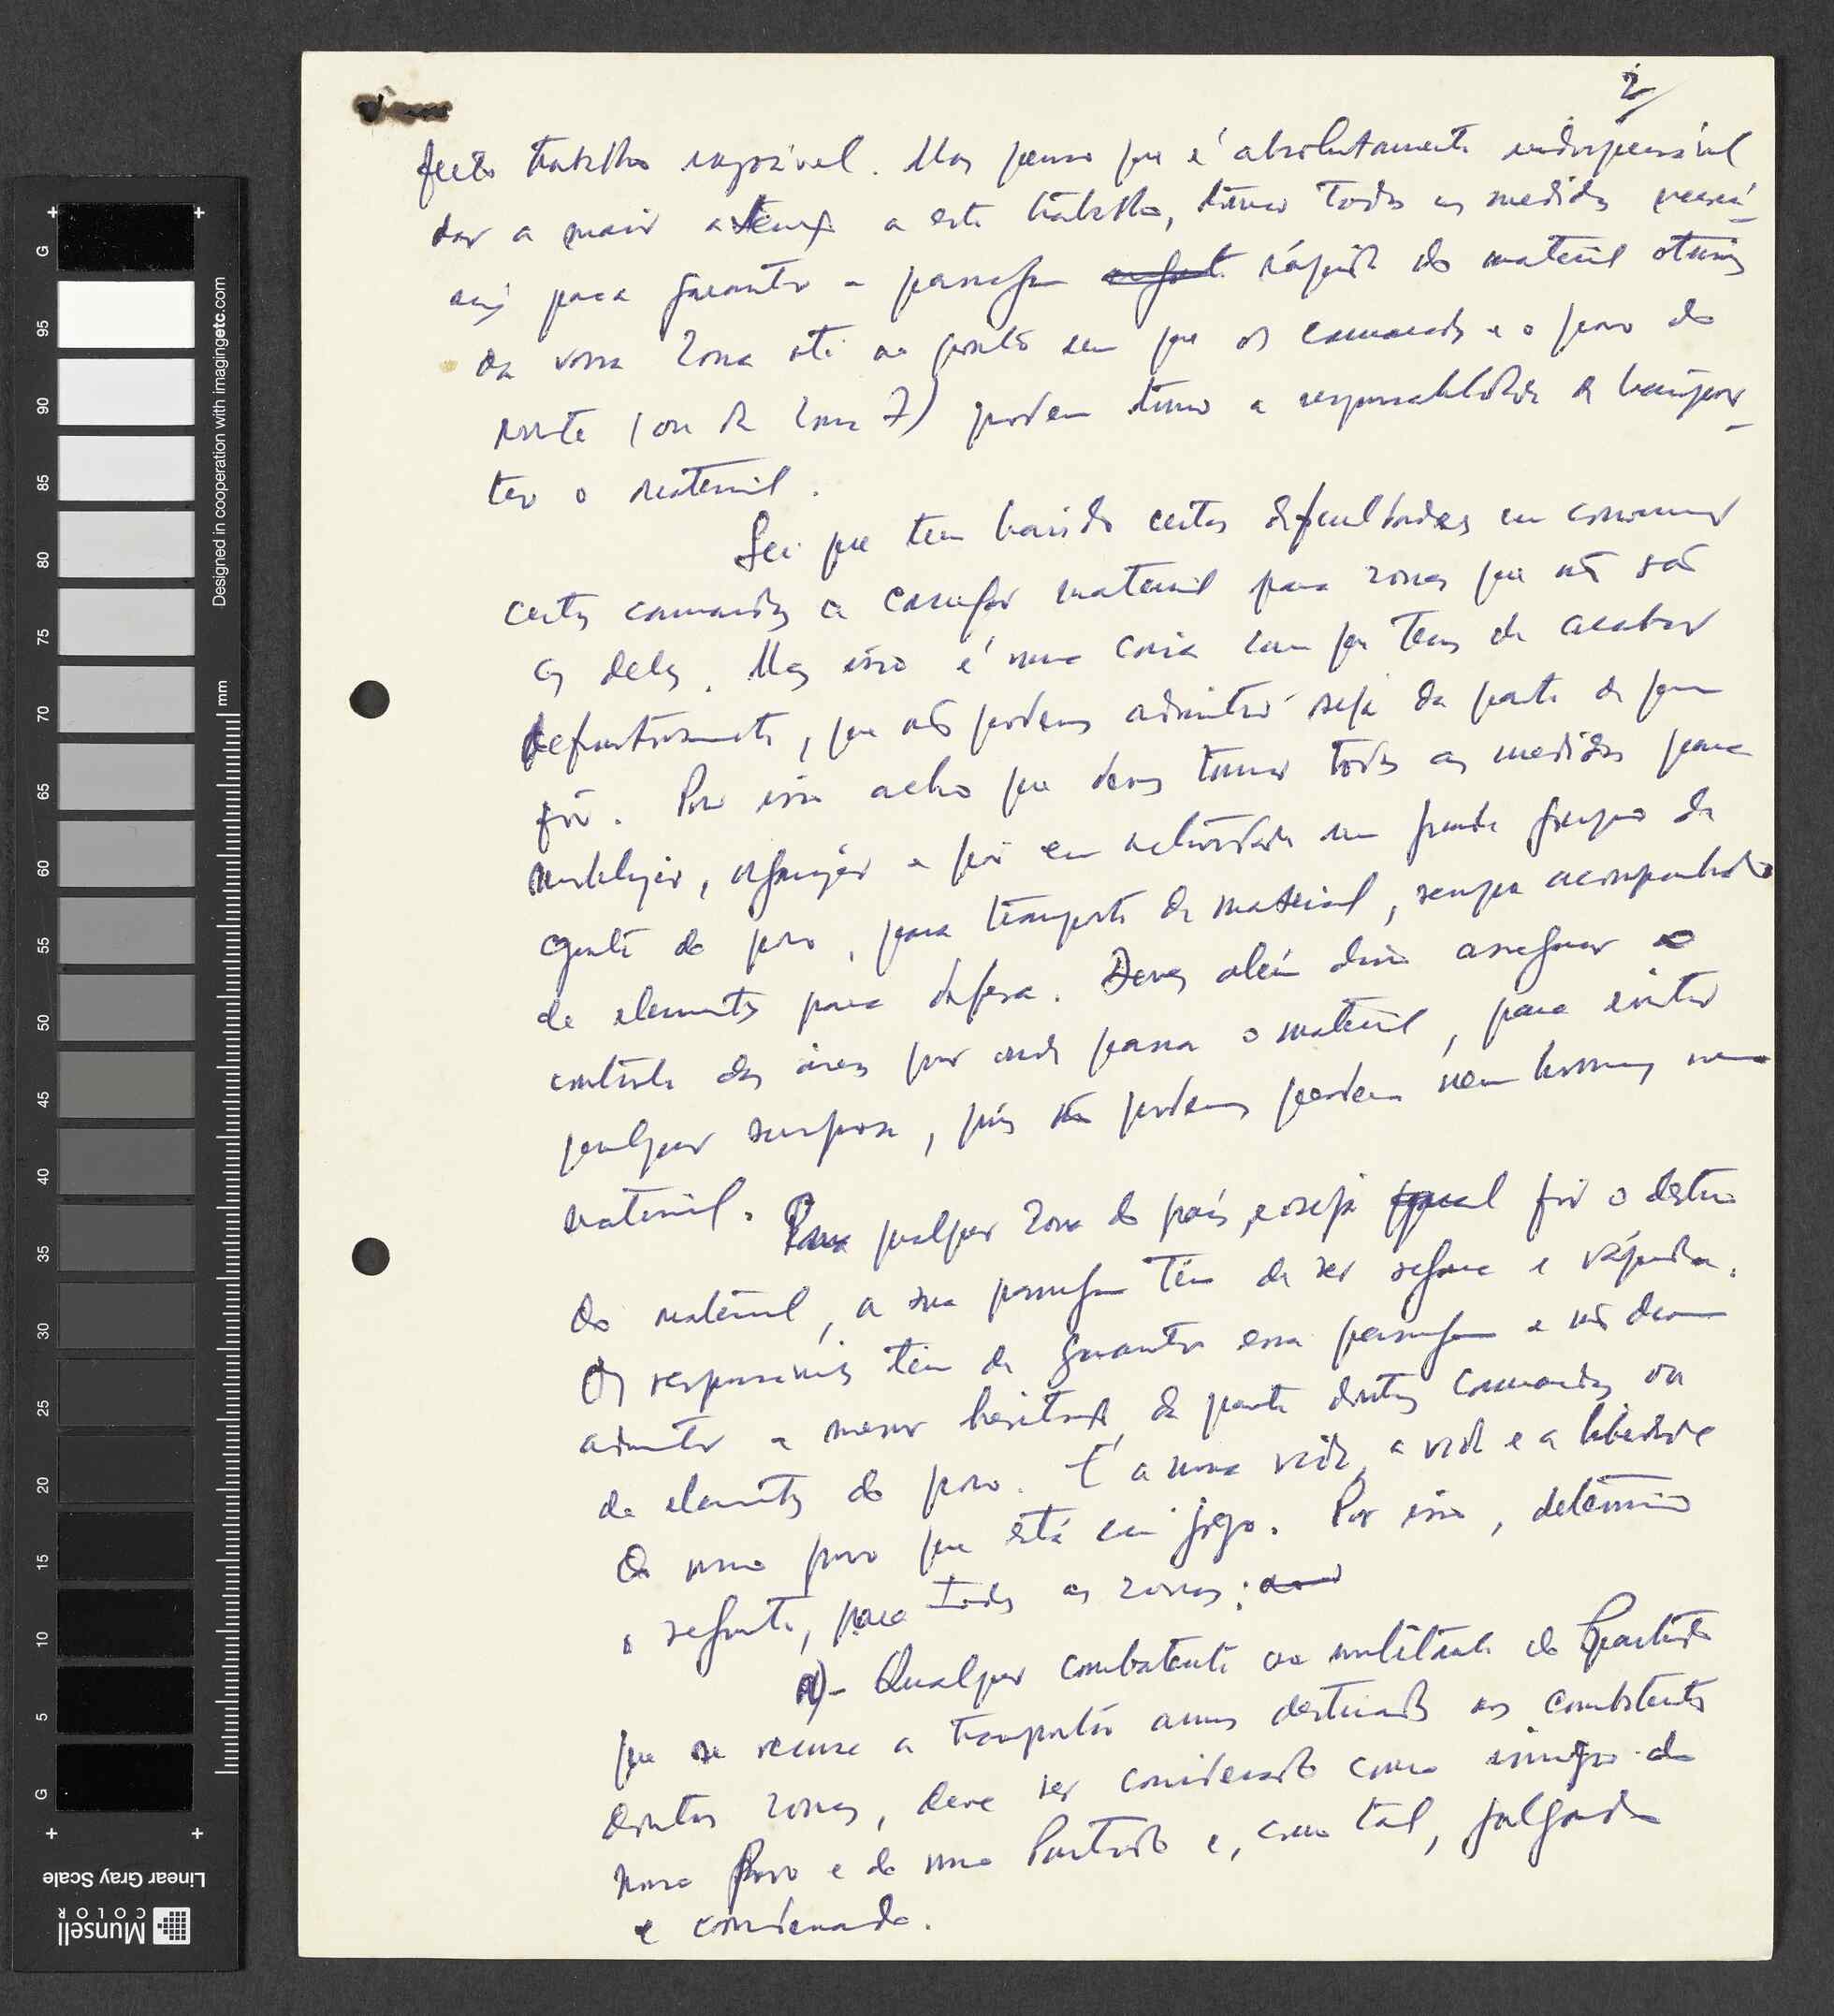 2
feito trabalho razoável. Mas penso que é absolutamente indispensável
dar a maior atenção a este trabalho, tomar todas as medidas necessá-
rias para garantir a passagem rápida do material através
da vossa zona até ao ponto em que os camaradas e o povo do
norte (ou da zona 7) podem tomar a responsabilidade de transpor-
tar o material.
Sei que tem havido certas dificuldades em convencer
certos camaradas a carregar material para zonas que não são
as deles. Mas isso é uma coisa com que temos de acabar
definitivamente, que não podemos admitir seja da parte de quem
fôr. Por isso acho que deves tomar todas as medidas para
mobilizar, organizar e pôr em actividade um grande grupo de
gente do povo, para transporte de material, sempre acompanhado
de elementos para defesa. Deves além disso assegurar o
controle das áreas por onde passa o material, para evitar
qualquer surpresa, pois não podemos perder nem homens nem
material. Para qualquer zona do país, e seja qual fôr o destino
do material, a sua passagem tem de ser segura e rápida.
Os responsáveis têm de garantir essa passagem e não devem
admitir a menor hesitação da parte dos camaradas ou
de elementos do povo. É a nossa vida, a vida e a liberdade
do nosso povo que está em jogo. Por isso, determino
o seguinte, para todas as zonas:
a)- Qualquer combatente ou militante do Partido
que se recuse a transportar armas destinadas aos combatentes
doutras zonas, deve ser considerado como inimigo do
nosso Povo e do nosso Partido e, como tal, julgado
e condenado.
G
95
90
85
80
75
70
65
60
55
50
45
40
35
30
25
20
15
10
5
G
mm
Designed in cooperation with imagingetc.com
Linear Gray Scale
Munsell
COLOR